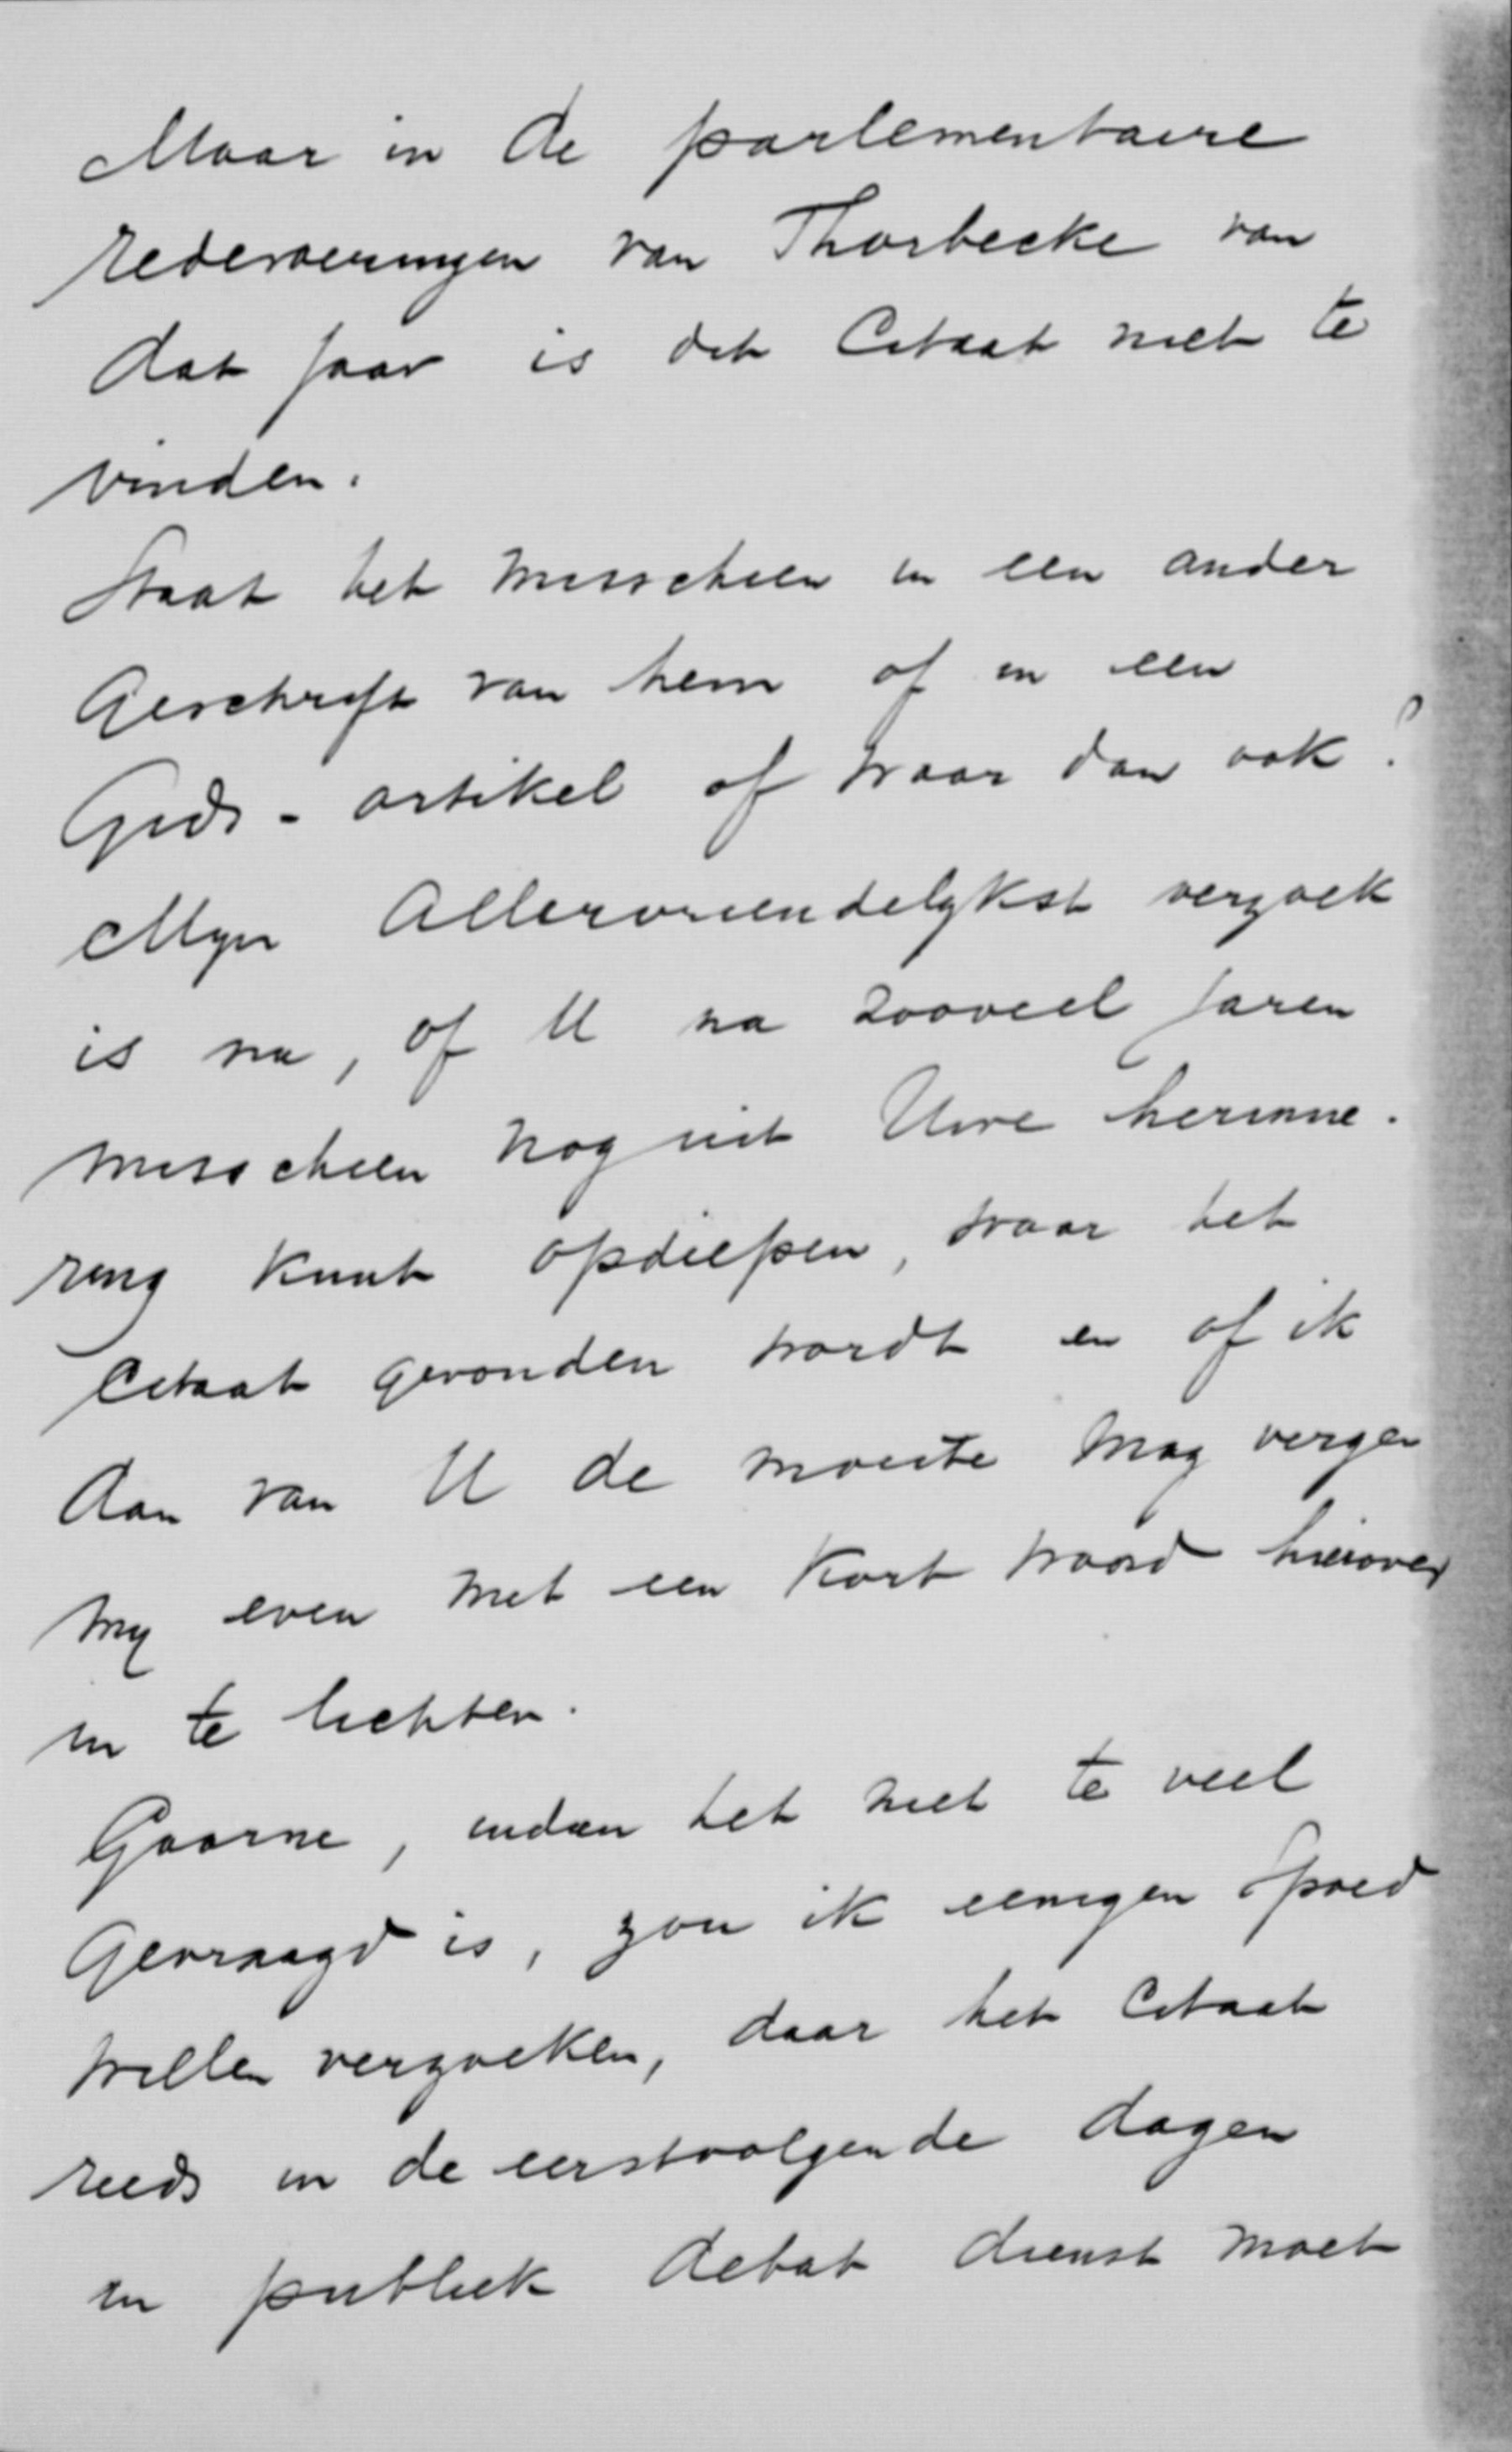 Maar in de parlementaire
redevoeringen van Thorbecke van
dat jaar is dit Citaat niet te
vinden.
Staat het misschien in een ander
Geschrift van hem of in een
Gids-artikel of waar dan ook?
Mijn Allervriendelijkst verzoek
is nu, of U na zooveel jaren
misschien nog uit Uwe herinne-
ring kunt opdiepen, waar het
Citaat gevonden wordt en of ik
dan van U de moeite mag vergen
mij even met een kort woord hierover
in te lichten.
Gaarne, indien het niet te veel
Gevraagd is, zou ik eenigen spoed
willen verzoeken, daar het Citaat
reeds in de eerstvolgende dagen
in publiek debat dienst moet